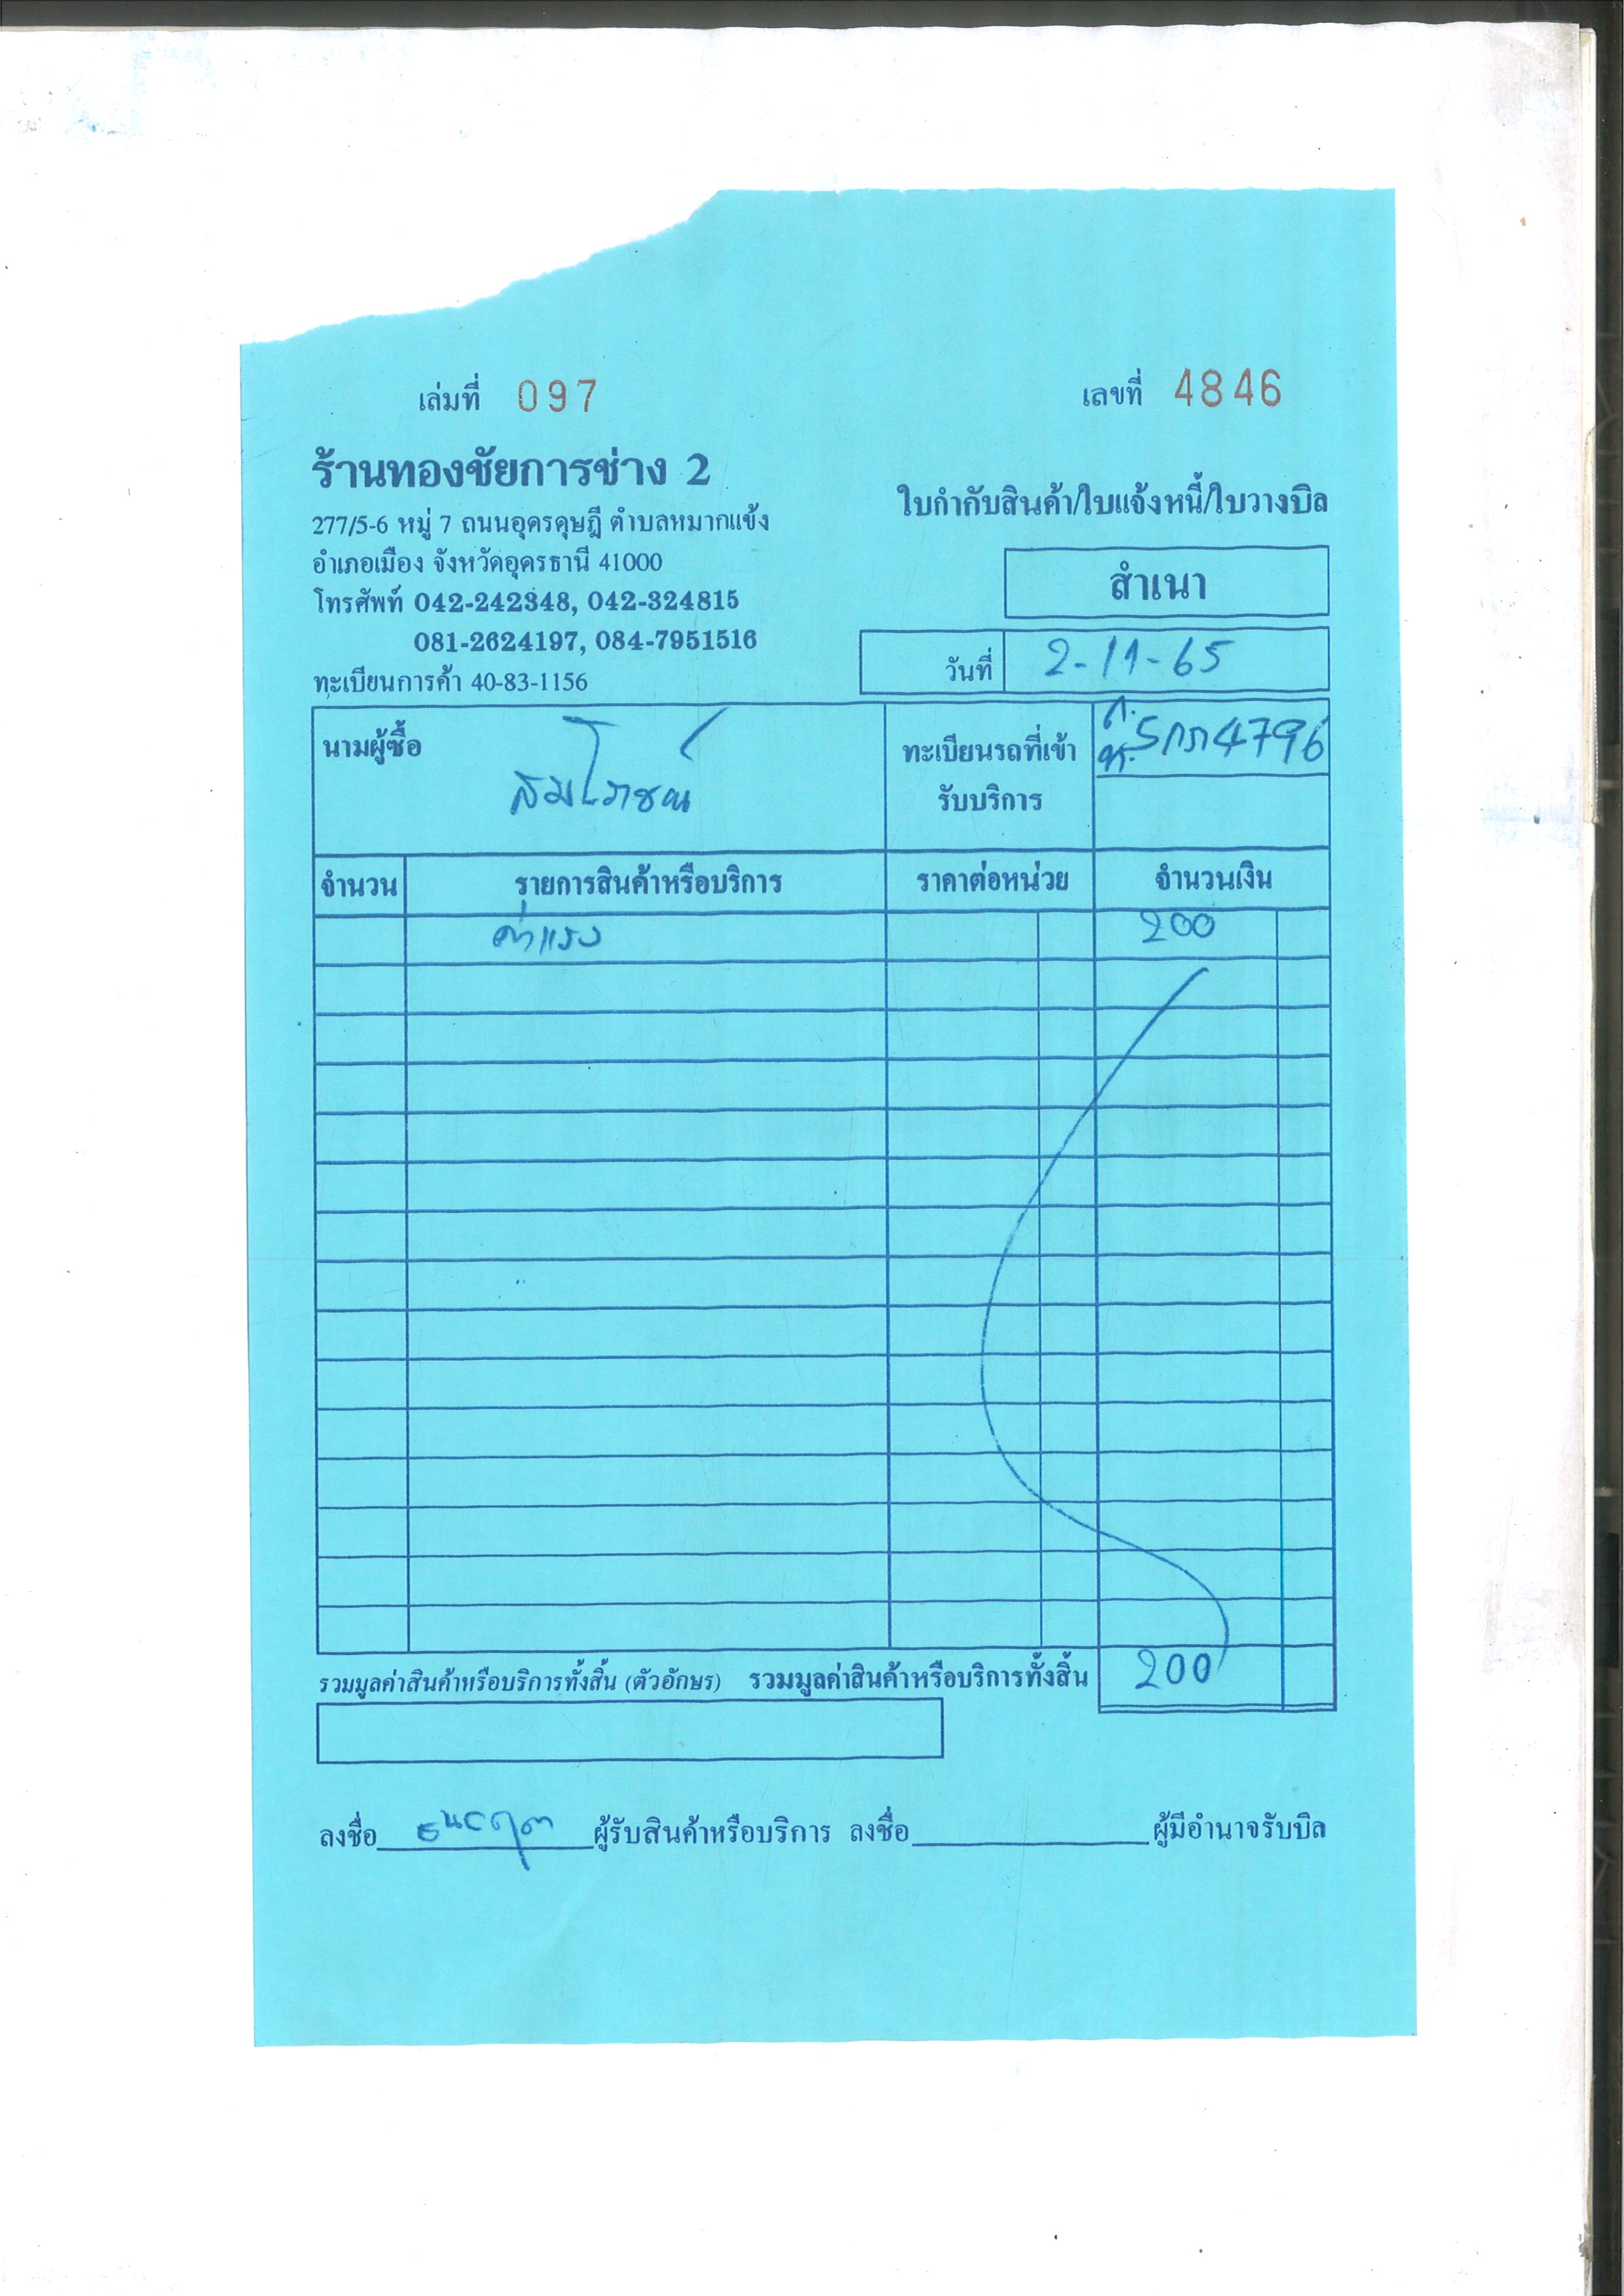 เล่มที่ 097 เลขที่ 4846
ร้านทองชัยการช่าง 2
277/5-6 หมู่ 7 ถนนอุดรดุษฎี ตำบลหมากแข้ง
อำเภอเมือง จังหวัดอุดรธานี 41000
โทรศัพท์ 042-242348, 042-324815
081-2624197, 084-7951516
ทะเบียนการค้า 40-83-1156
ใบกำกับสินค้า/ใบแจ้งหนี้/ใบวางบิล
สำเนา
วันที่ 2-11-65
นามผู้ซื้อ สมโภชณ์
ทะเบียนรถที่เข้า
รับบริการ
4796
จำนวน รายการสินค้าหรือบริการ ราคาต่อหน่วย จำนวนเงิน
ค่าแรง 200
รวมมูลค่าสินค้าหรือบริการทั้งสิ้น (ตัวอักษร) รวมมูลค่าสินค้าหรือบริการทั้งสิ้น 200
ลงชื่อ ผู้รับสินค้าหรือบริการ ลงชื่อ ผู้มีอำนาจรับบิล